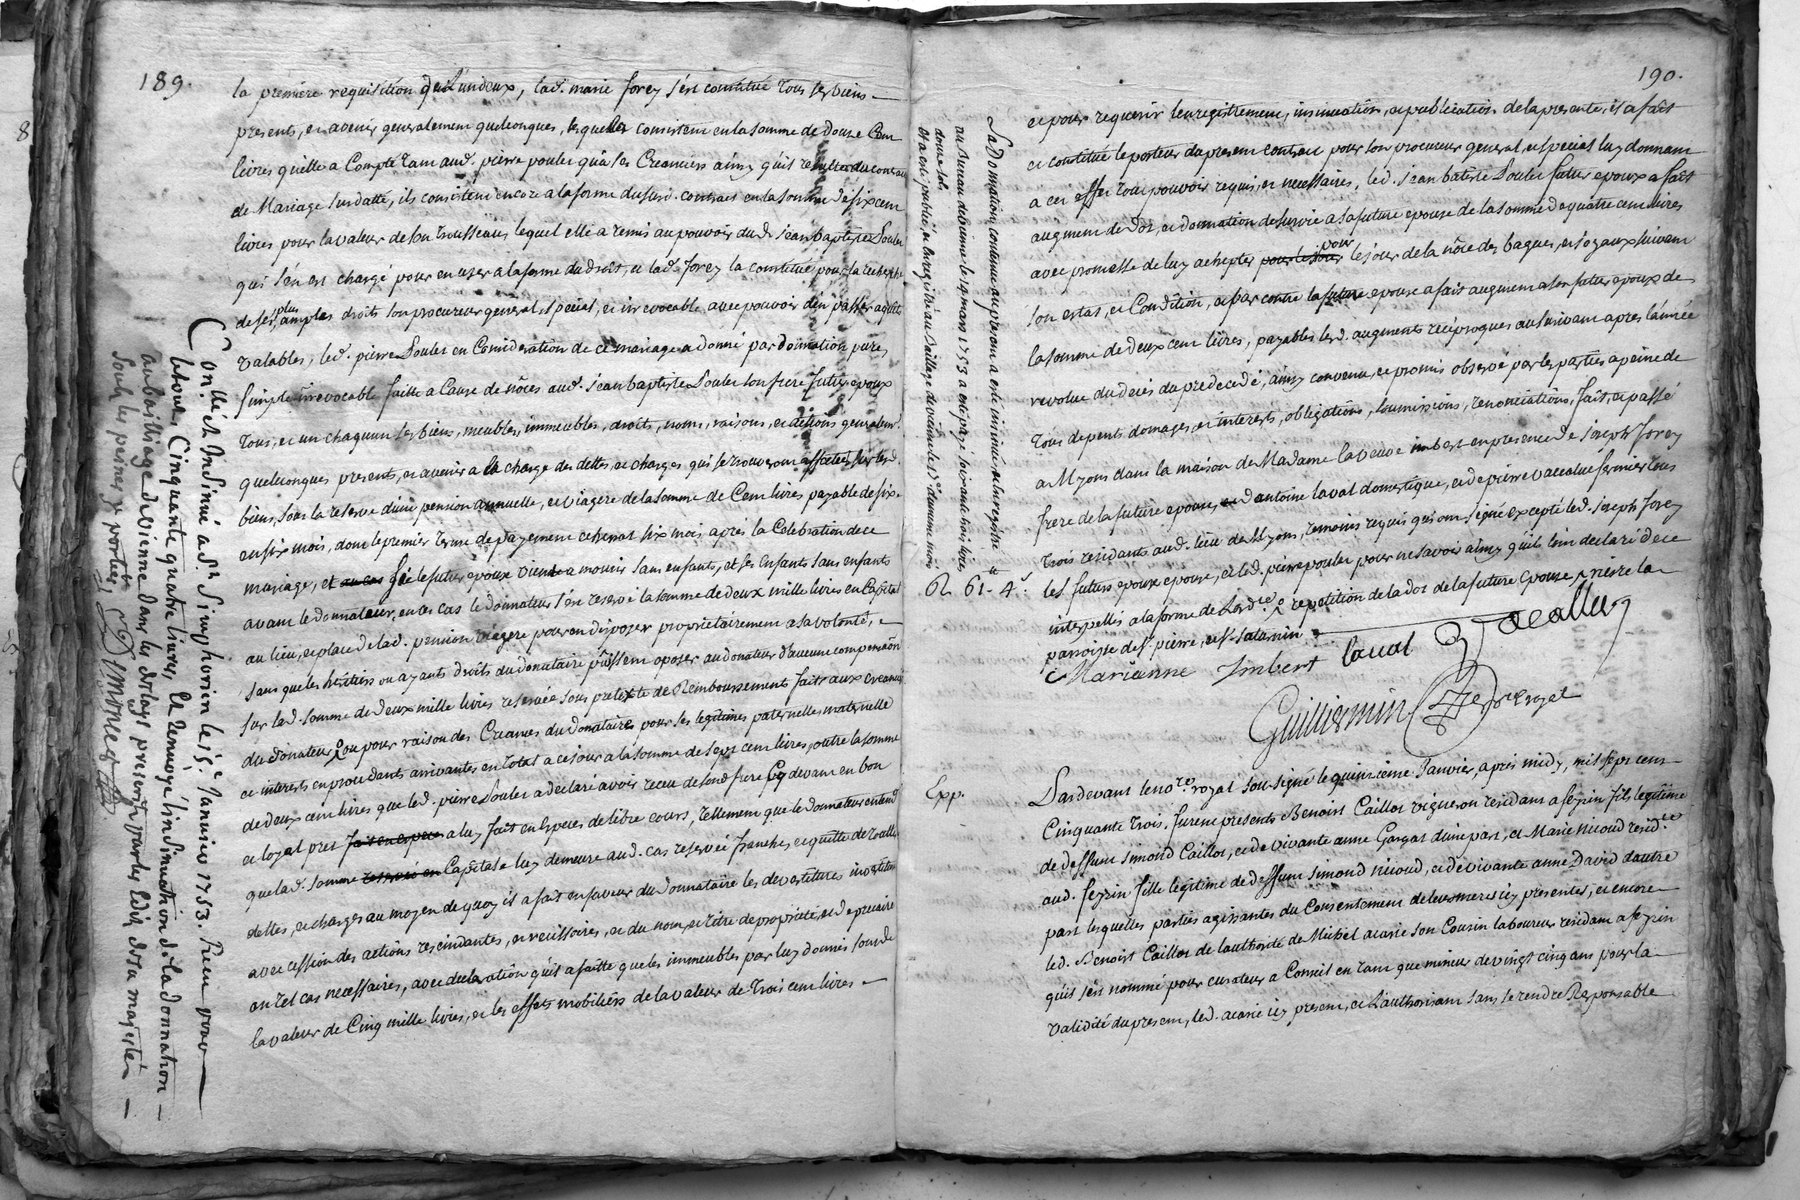 189.
la premiere requisition de L'un deux, lad. marie forey s'est constitué tous ses biens
presents, et avenir generalement quelconques, lesquelles consistent en la somme de Douze Cent
livres qu'elle a Compté tant aud. pierre poulet qu'a ses Creanciers ainsy qu'il resulte du contract
de Mariage surdatté, ils consistent encore a la forme dususd. contract en la somme de six cent
livres pour la valeur de son trousseau, lequel elle a remis au pouvoir dud. jean baptiste Poulet
qui s'en est chargé pour en user a la forme du droit, et lad. forey la constitué pour la recherche
de ses plus amples droits son procureur general, special, et irrevocable, avec pouvoir d'en passer
valables, led. pierre Poulet en Consideration de ce mariage a donné par donnation pure,
simple irrevocable faitte a Cause de nôces aud. jean baptiste Poulet son frere futur epoux
tous, et un chaqu'un ses biens, meubles, immeubles, droits, noms, raisons, et actions generalem.
quelconques presents, et avenir a la charge des dettes, et charges qui se trouveront affectées sur lesd.
biens, sous la reserve d'une pension annuelle, et viagere de la somme de Cent livres payable de six
en six mois, dont le premier terme de payement echerrat six mois après la Celebration de ce
mariage, et au cas que le futur epoux vient a mourir sans enfants, et ses Enfants sans enfants
avant le donnateur, en ce cas le donnateur s'en reservé la somme de deux mille livres en Capital
au lieu, et place de lad. pension viagere pour en disposer proprietairement a sa volonté,
sans que les heritiers ou ayants droits du donataire puissent oposer au donateur d'aucune compensation
sur lad. somme de deux mille livres reservée sous pretexte de Remboursements faits aux creanciers
du donateur, ou pour raison des Creances du donataire pour ses legitimes paternelle, maternelle
et interets en procedants arrivantes en total a ce jour a la somme de sept cent livres, outre la somme
de deux cent livres que led. pierre Poulet a declaré avoir receu de sond. frere cy devant en bon
et loyal pret fait en espece a luy fait en Especes de libre cours, tellement que le donnateur entend
que lad. somme reservé en Capitale luy demeure aud. cas reservée franche, et quitte de toutte
dettes, et charges au moyen de quoy il a fait en faveur du donnataire les devestiture, investiture
avec cession des actions rescindantes, et rescissoires, et du nom, et titre de proprieté, et d'eprecaire
en tel cas necessaires, avec declaration qu'il a faitte que les immeubles par luy donnés sont de
la valeur de Cinq mille livres, et les effets mobiliers de la valeur de trois cent livres
Con.llé et Insinué a St Simphorien le 15.e Janvier 1753. Receu pour
letout Cinquante quatre livres, Et renvoyé l'insinuation de la donnation
au bailliage de vienne dans les delays prescrits par les Edits de sa majesté
sous les peines y portées
190.
et pour requerir l'enregistrement, insinuation, et publication de la presente, il a fait
et constitué le porteur du present contract pour son procureur general, et special luy donnant
a cet effet tout pouvoir requis, et necessaires, led. jean batiste Poulet futur epoux a fait
augment de Dot, et donnation de survie a sa future epouse de la somme de quatre cent livres
avec promesse de luy achepter pour le jour pour le jour de la nôce des bagues, et joyaux suivant
son estat, et Condition, et par contre la future epouse a fait augment a son futur epoux de
la somme de deux cent livres, payables lesd. augments reciproques au survivant apres l'année
revolue du decés du predecedé, ainsy convenu, et promis observé par les parties a peine de
tous depents, domages, et interets, obligations, soumissions, renonciations, fait, et passé
a Mions dans la maison de Madame la veuve imbert en presence de joseph forey
frere de la future epouse, et d'antoine laval domestique, et de pierre vacalue fermier tous
trois residants aud. lieu de Myons, temoins requis qui ont signé excepté led. joseph forey
les futurs epoux epouse, et led. pierre poulet pour ne savoir ainsy qu'ils l'ont declaré de ce
interpellés a la forme de Lord.ce repetition de la dot de la future epouse riere la
parroisse de St. pierre, et St. saturnin
Marianne Imbert laval Vacallue
Guilliermin N.re Royal
La donnation contenue au present a esté insinué, et enregistré
au Bureau de vienne le 14 mars 1753 a eté payé soixante trois livres
douze sols
et a eté publié, et enregistré au bailliage de vienne le 15e du meme mois
R 61- 4s.
Exp.
Pardevant le no.re royal sousigné le quinzieme Janvier, après midy, mil sept cent
Cinquante trois, furent presents Benoist Caillot vigneron residant a feyzin fils legitime
de deffunt simond Caillot, et de vivante anne Gargat d'une part, et Marie nicoud resid.te
aud. feyzin fille legitime de deffunt simond nicoud, et de vivante anne David d'autre
part lesquelles parties agissantes du Consentement de leurs meres icy presentes, et encore
led. Benoist Caillot de l'authorité de Michel acarie son Cousin laboureur residant a feyzin
qu'il s'est nommé pour curateur a Conseil en tant que mineur de vingt cinq ans pour la
validité du present, led. acarie icy present, et L'authorisant sans se rendre Responsable